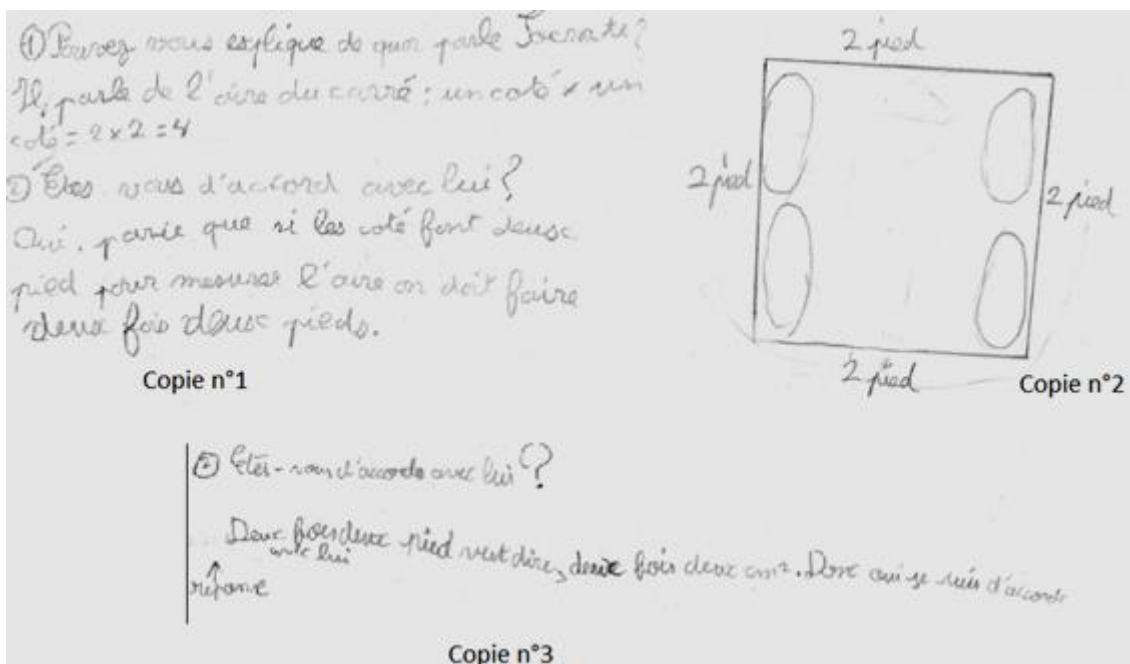 ① Pouvez vous esplique de quoi parle Socrate?
Il parle de l'aire du carré : un coté x un
coté = 2 x 2 = 4
② Êtes vous d'accord avec lui?
Oui, parce que si les coté font deux
pied pour mesurer l'aire on doit faire
deux fois deux pieds.
Copie n°1
2 pied
2 pied
2 pied
2 pied
Copie n°2
② Etes-vous d'accorde avec lui?
Deux fois deux pied veut dire, deux fois deux cm². Donc oui je suis d'accorde
avec lui
réponse
Copie n°3